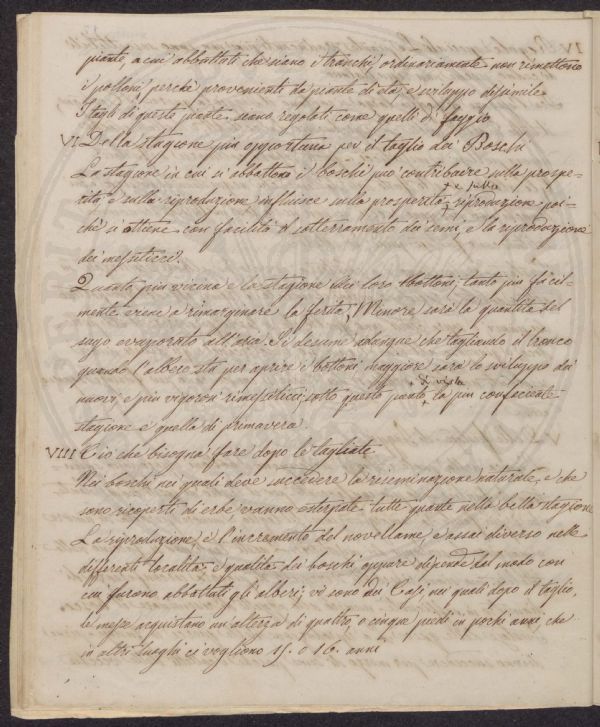 piante, a cui abbattuti che siano i tronchi, ordinariamente non rimettono
i polloni, perchè provenienti da piante di età, e sviluppo dissimile
I tagli di queste piante siano regolati come quelli di faggio
VI Della stagione più opportuna per il taglio dei Boschi
La stagione in cui si abbattono i boschi può contribuire sulla prospe-
rità, e sulla riproduzione, influisce sulla prosperità + e sulla + riproduzione poi-
chè si ottiene con facilità il sotterramento dei semi, e la riproduzione
dei messiticci.
Quanto più vicina è la stagione alli loro bottoni, tanto più facil-
mente viene a rimarginare la ferita; Minore sarà la quantità del
sugo evaporato all'aria. Si desume adunque che tagliando il tronco
quando l'albero sta per aprire i bottoni maggiore sarà lo sviluppo dei
nuovi, e più vigorosi rimessiticci; sotto questo punto + di vista + la più confacevole
stagione è quella di primavera
VIII Ciò che bisogna fare dopo le tagliate
Nei boschi nei quali deve succedere la riseminazione naturale, e che
sono ricoperti di erbe vanno estirpate tutte quante nella bella stagione
La riproduzione, e l'incremento del novellame, è assai diverso nelle
differenti località, e qualità dei boschi oppure dipende dal modo con
cui furono abbattuti gli alberi; vi sono dei Casi nei quali dopo il taglio,
le messe acquistano un'altezza di quattro, o cinque piedi in pochi anni, che
in altri luoghi ci vogliono 15. o 16. anni